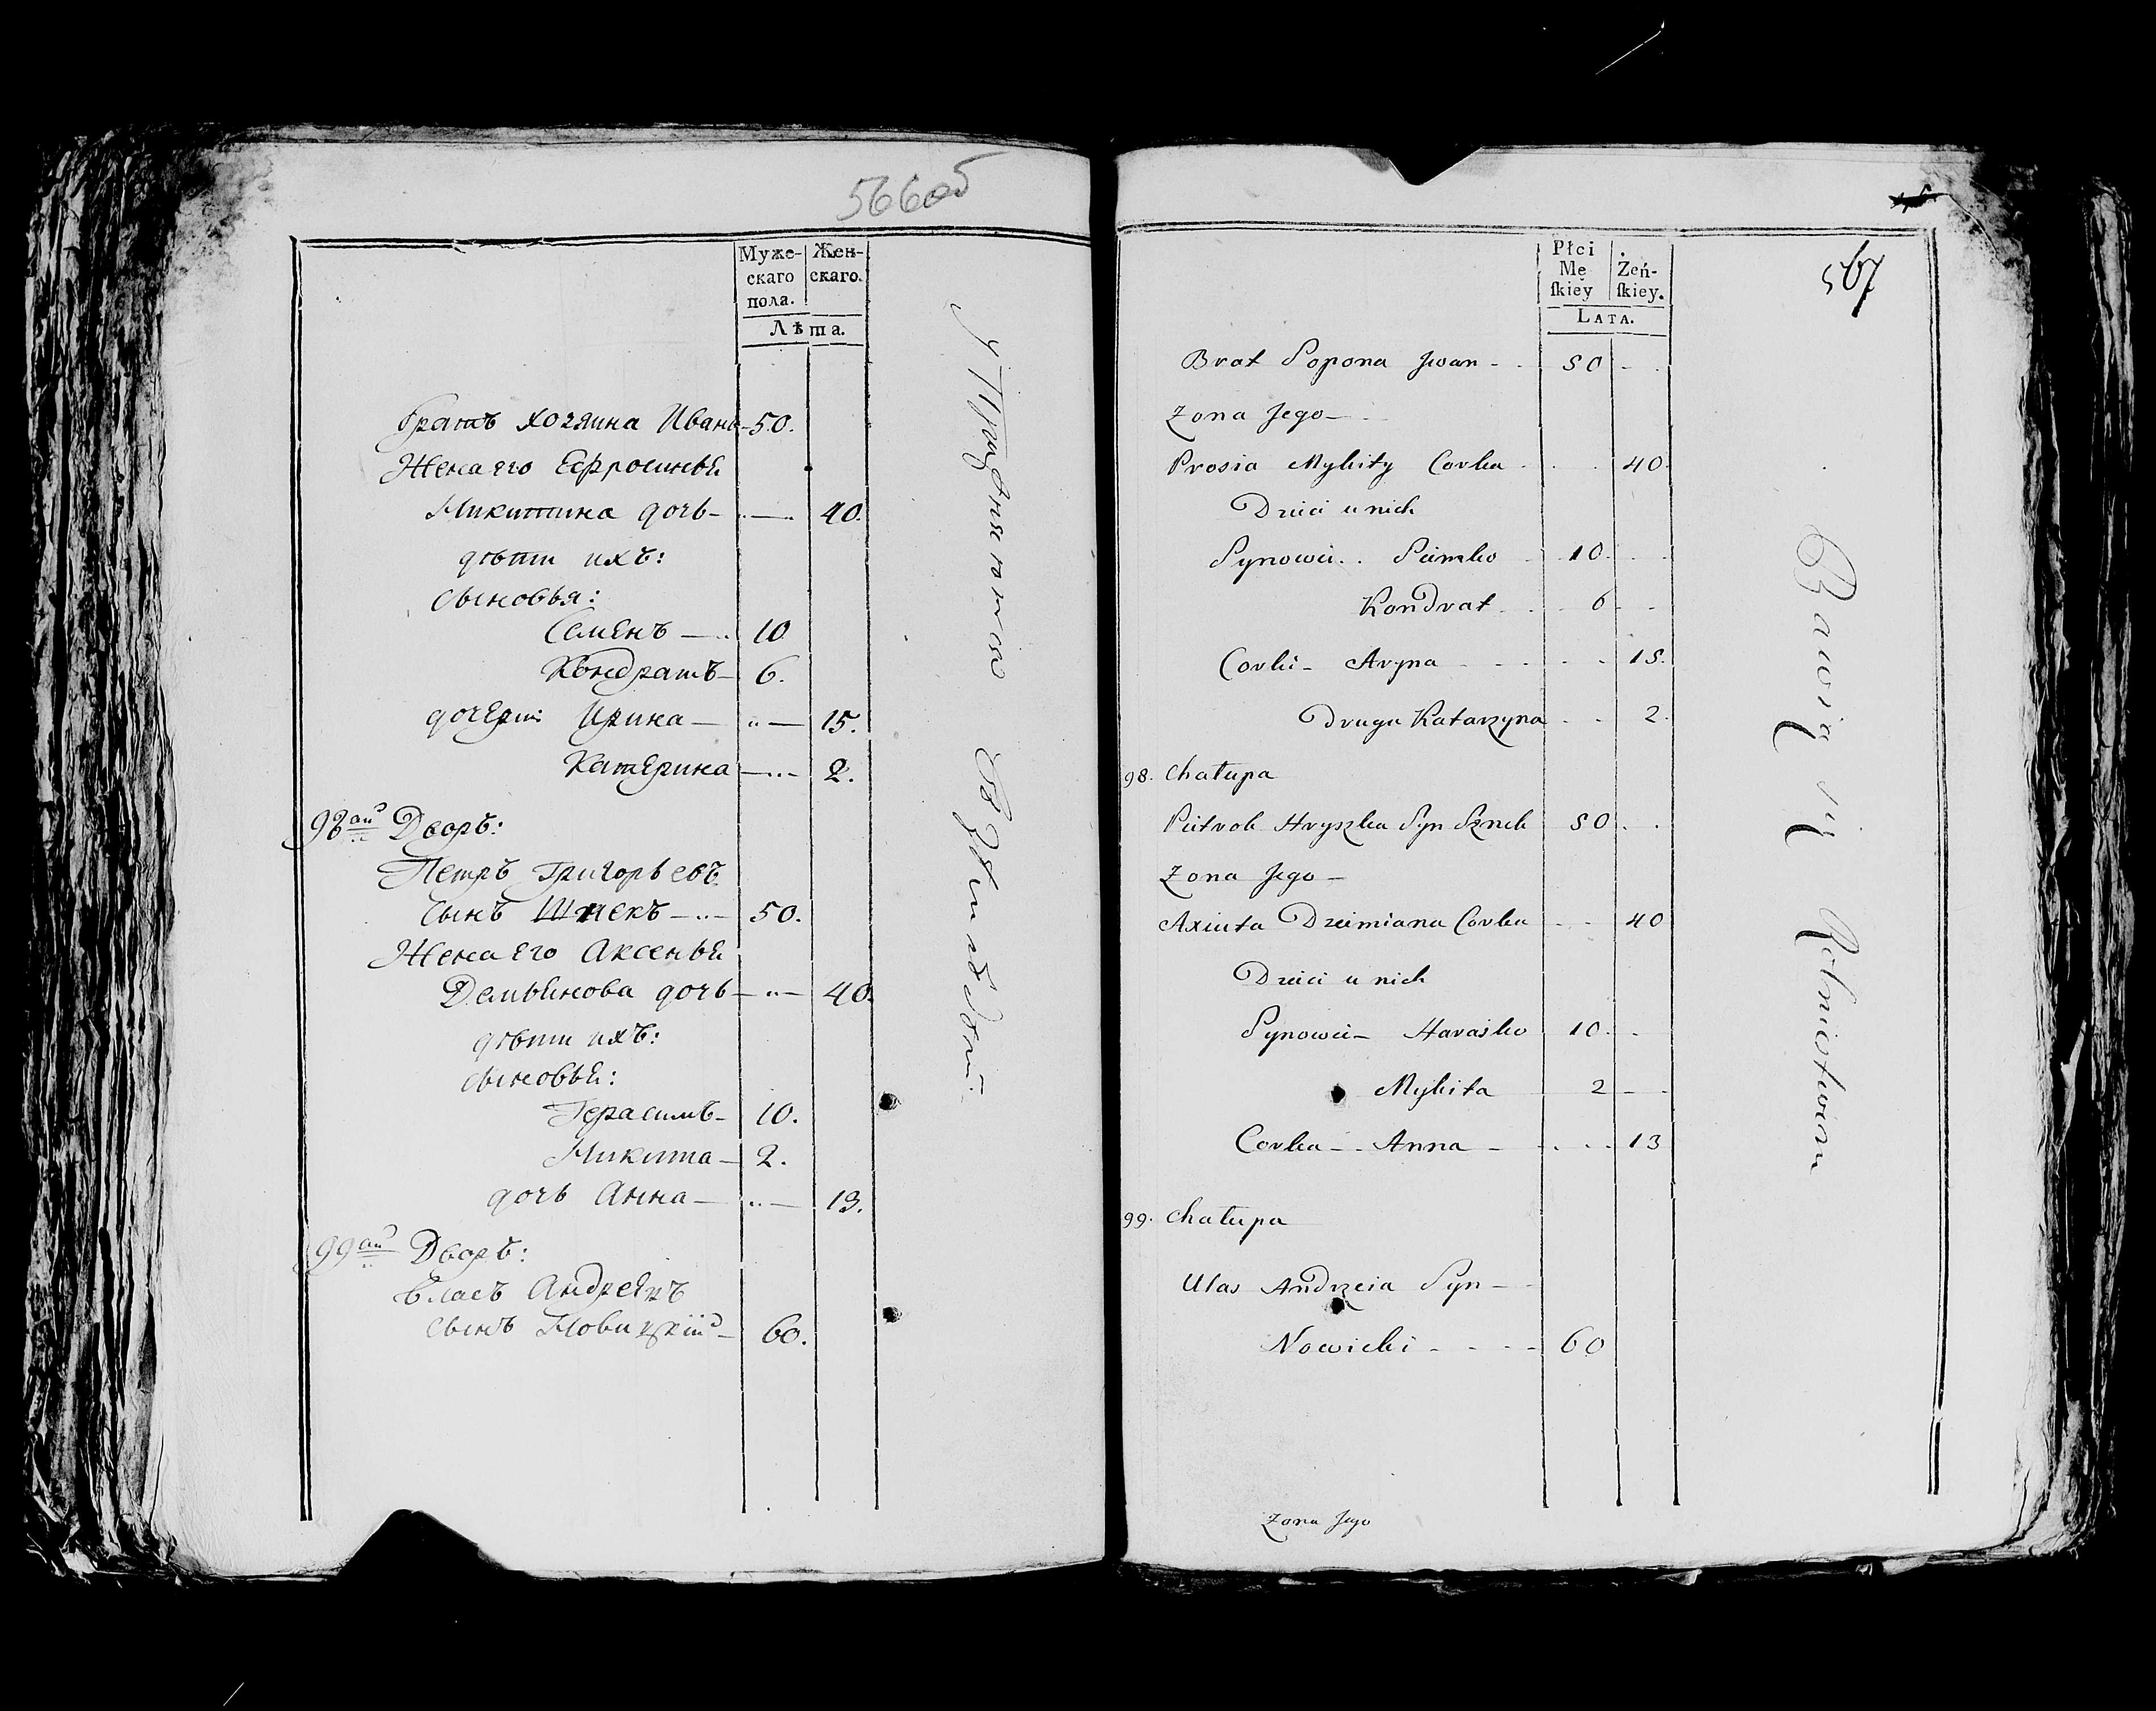 566 об
Муже-
скаго
пола.
Жен-
скаго.
Лѣта.
братъ хозяина Иванъ - 50.
Жена его Ефросинья
Никитина дочь - 40.
дѣти ихъ:
сыновья:
Семенъ - 10
Кондратъ - 6.
дочери Ирина - 15.
Катерина - 2.
98ай Дворъ:
Петръ Григорьевъ
сынъ - 50.
Жена его Аксенья
Демьянова дочь - 40.
дѣти ихъ:
сыновья:
Герасимъ - 10.
Никита - 2.
дочь Анна - 13.
99ай Дворъ:
Власъ Андреевъ
сынъ Новицкій - 60.
567
Płci
Mę
ſkiey
Żeń-
ſkiey.
LATA.
Brat Popona Jwan - 50
Zona Jego -
Prosia Mykity Corka 40
Dzieci u nich
Synowie Siemko 10
Kondrat 6
Corki - Aryna 15.
Druga Katarzyna 2.
98. Chałupa
Pietrok Hryszka Syn 50
Zona Jego -
Axiuta Dziemiana Corka 40
Dzieci u nich
Synowie - Haraśko 10
Mykita 2
Corka - Anna - 13
99. Chałupa
Ułas Andrzeia Syn -
Nowicki - 60
Zona Jego
Bawią się Rolnictwem